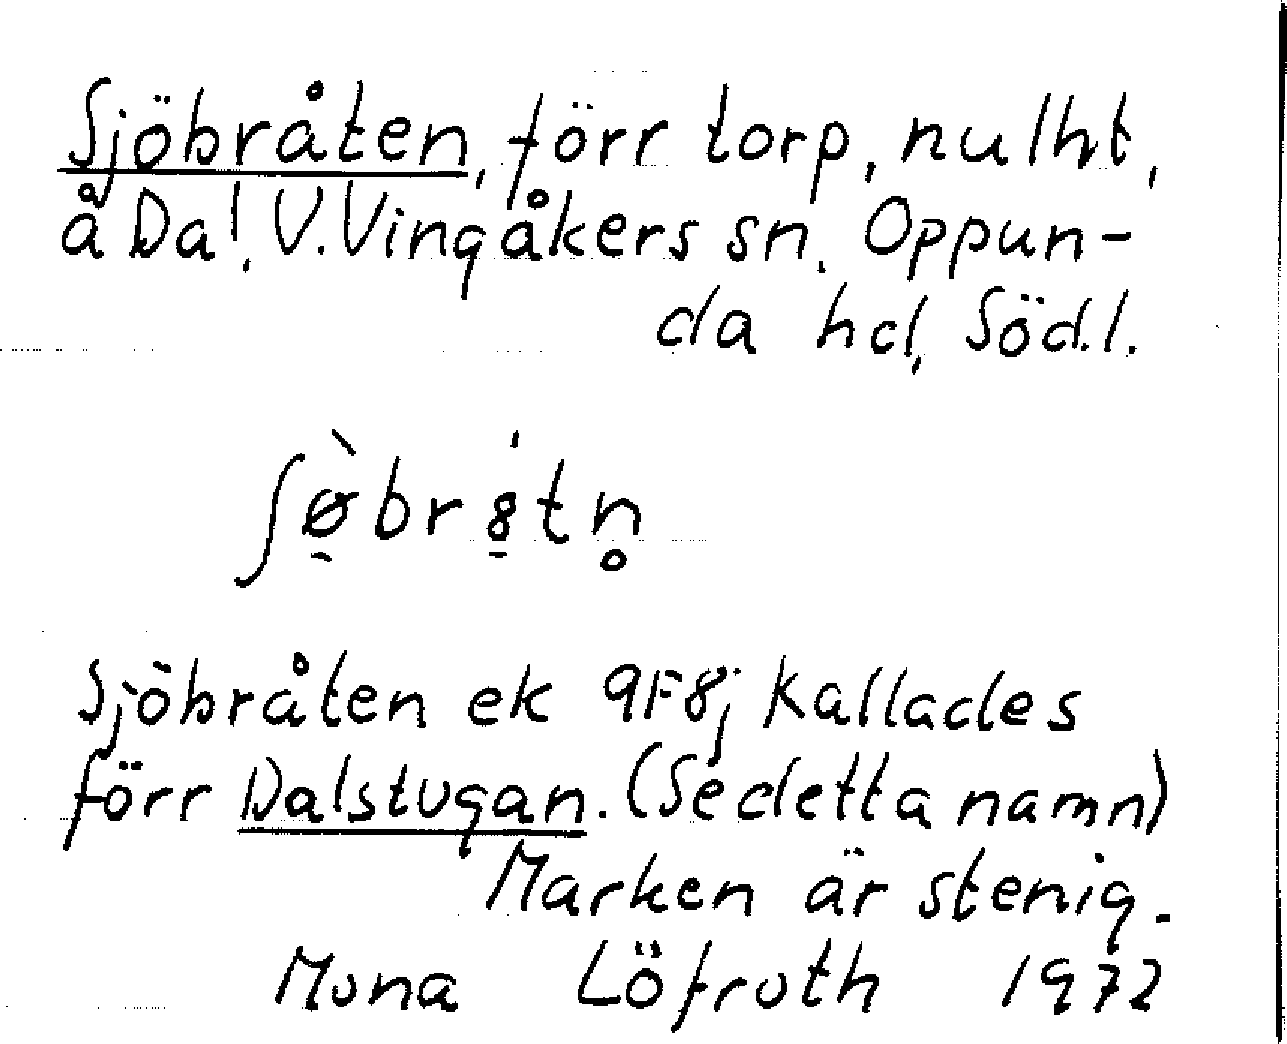 Sjöbråten, förr torp, nu lht,
å Dal, V. Vingåkers sn. Oppun-
da hd, Södl.
ʃø̠̀br8̠́tn̥
Sjöbråten ek 9F8j kallades
förr Dalstugan. (Se detta namn)
Marken är stenig.
Mona Löfroth 1972